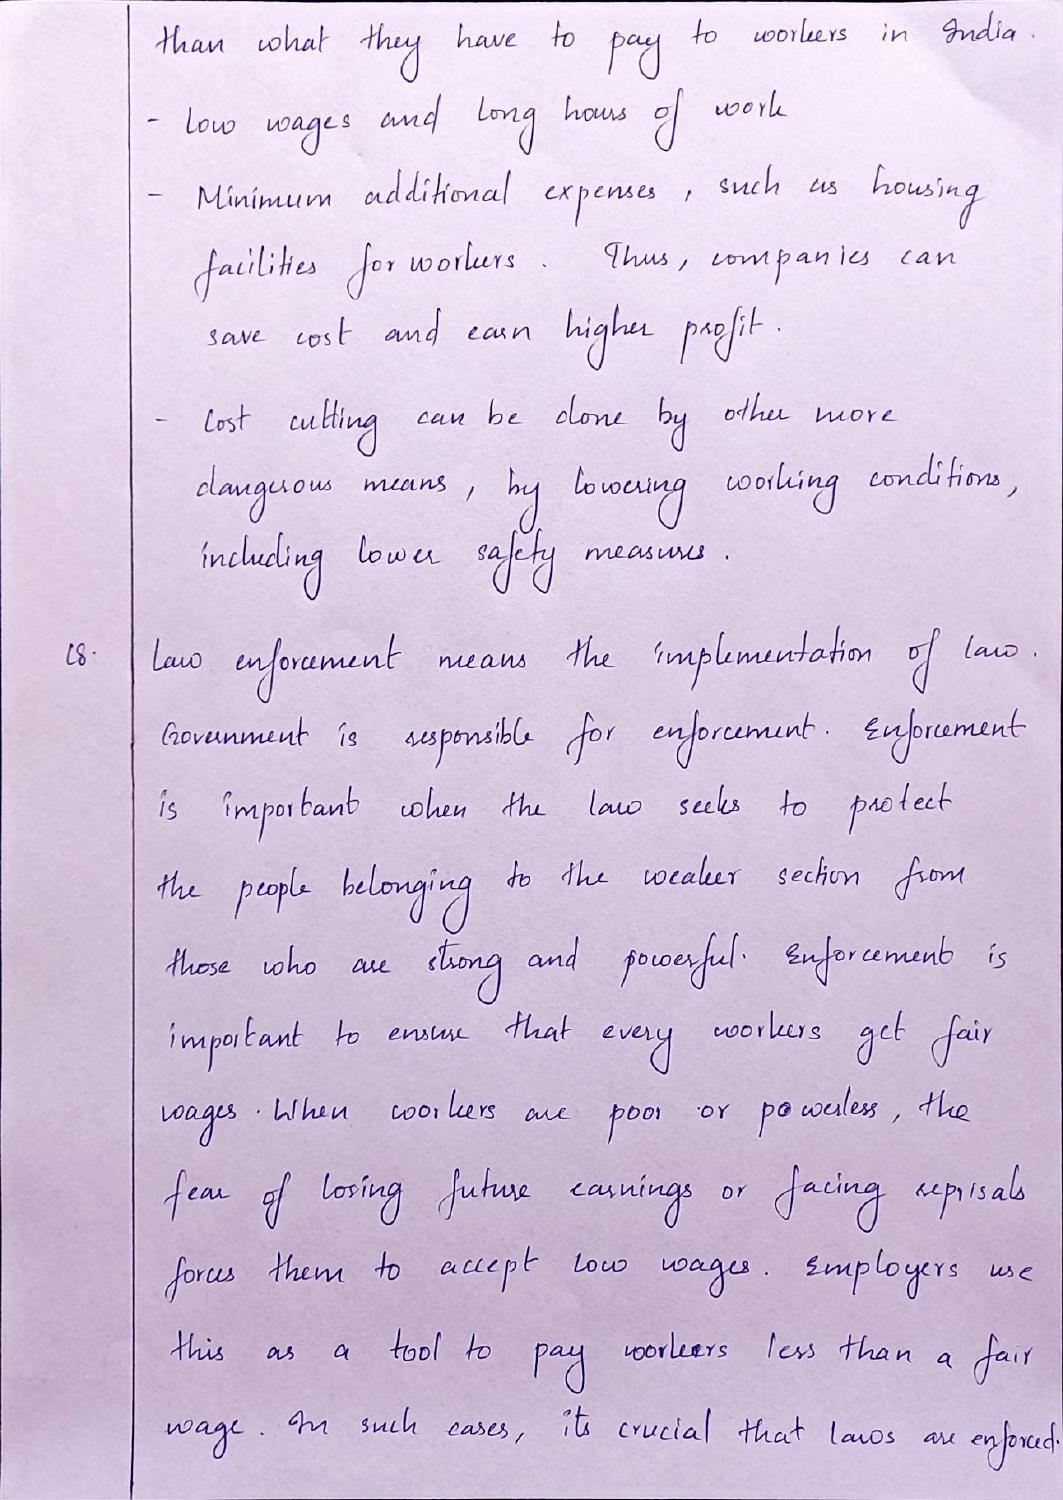 than what they have to pay to workers in India.
- Low wages and long hours of work
- Minimum additional expenses, such as housing
facilities for workers. Thus, companies can
save cost and earn higher profit.
- Cost cutting can be done by other more
dangerous means, by lowering working conditions,
including lower safety measures.
18. Law enforcement means the implementation of law.
Government is responsible for enforcement. Enforcement
is important when the law seeks to protect
the people belonging to the weaker section from
those who are strong and powerful. Enforcement is
important to ensure that every workers get fair
wages. When workers are poor or powerless, the
fear of losing future earnings or facing reprisals
forces them to accept low wages. Employers use
this as a tool to pay workers less than a fair
wage. In such cases, its crucial that laws are enforced.